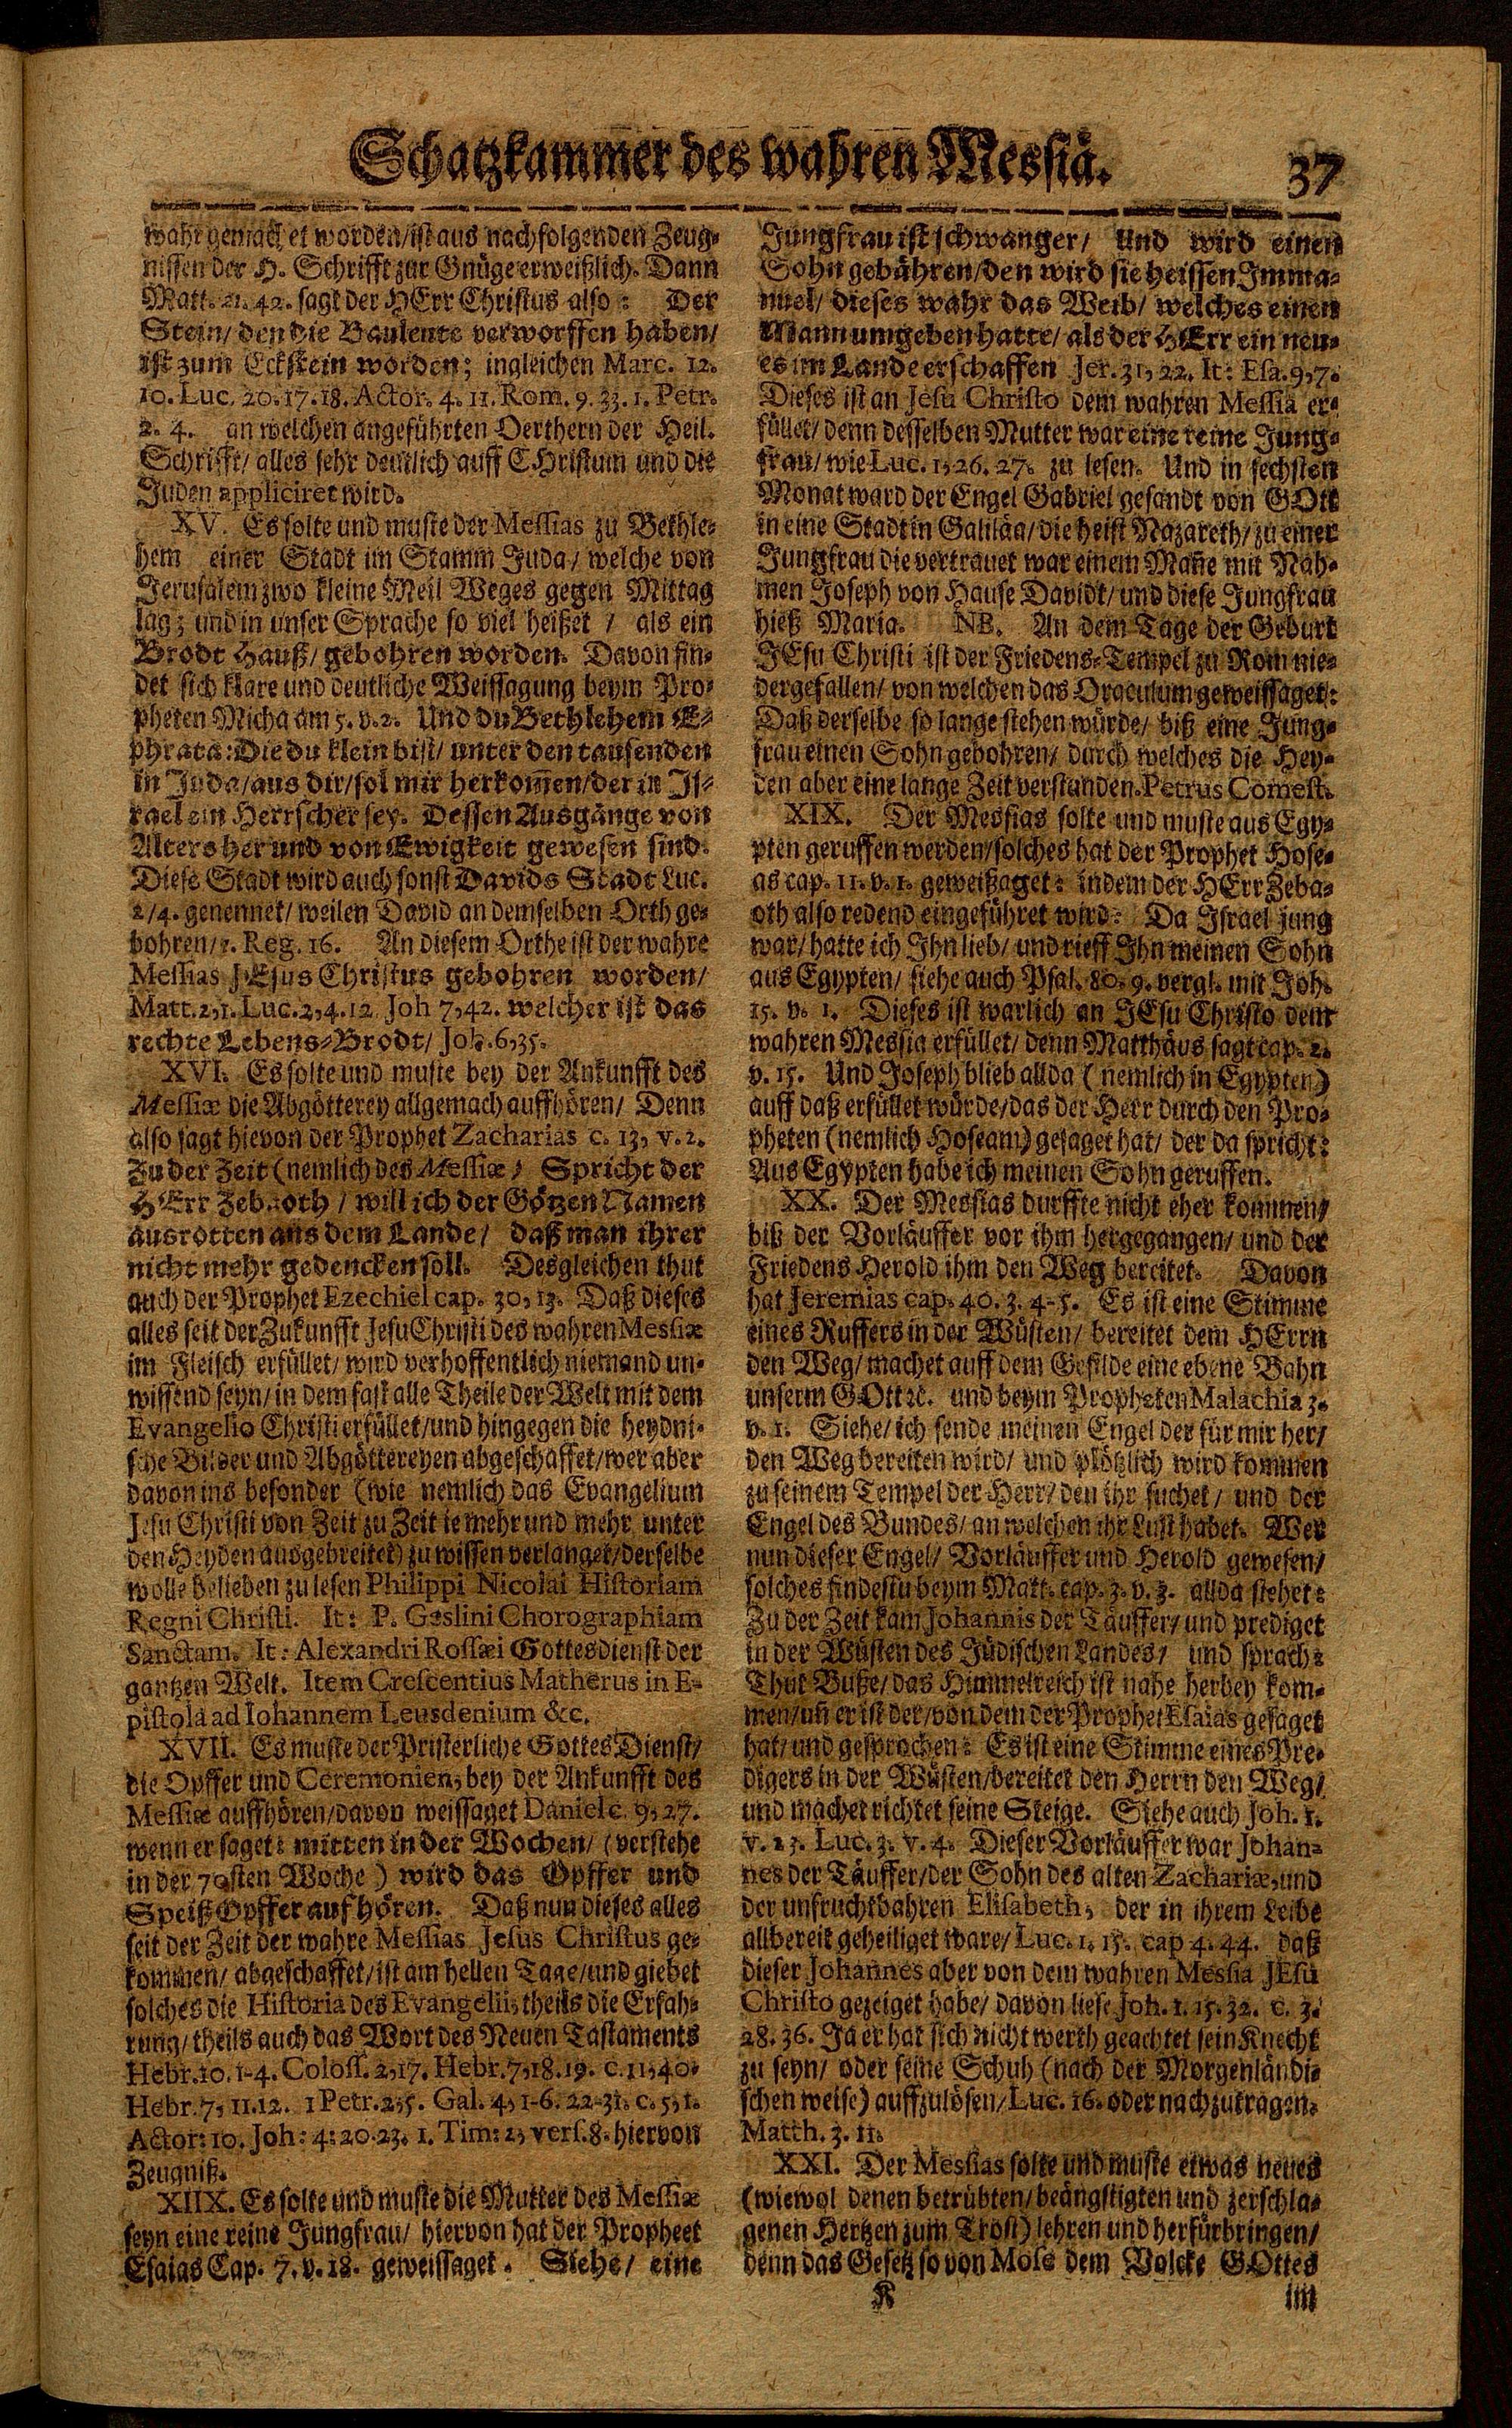 Schatzkammer des wahren Messiä.
37
wahr gemachet worden/ ist aus nachfolgenden Zeug-
nissen der H. Schrifft zur Gnüge erweißlich. Dann
Matt. 21. 42. sagt der HErr Christus also: Der
Stein/ den die Bauleute verworffen haben/
ist zum Eckstein worden; ingleichen Marc. 12.
10. Luc. 20. 17. 18. Actor. 4. 11. Rom. 9. 33. 1. Petr.
2. 4. an welchen angeführten Oerthern der Heil.
Schrifft/ alles sehr deutlich auff CHristum und die
Juden appliciret wird.
XV. Es solte und muste der Messias zu Bethle-
hem einer Stadt im Stamm Juda/ welche von
Jerusalem zwo kleine Meil Weges gegen Mittag
lag; und in unser Sprache so viel heißet / als ein
Brodt Hauß/ gebohren worden. Davon fin-
det sich klare und deutliche Weissagung beym Pro-
pheten Micha am 5. v. 2. Und du Bethlehem E-
phrata: Die du klein bist/ unter den tausenden
in Juda/ aus dir/ sol mir herkom̃en/ der in Is-
rael ein Herrscher sey. Dessen Ausgänge von
Alters her und von Ewigkeit gewesen sind.
Diese Stadt wird auch sonst Davids Stadt Luc.
2/4. genennet/ weilen David an demselben Orth ge-
bohren/ 1. Reg. 16. An diesem Orthe ist der wahre
Messias JEsus Christus gebohren worden/
Matt. 2, 1. Luc. 2, 4. 12 Joh 7, 42. welcher ist das
rechte Lebens-Brodt/ Joh. 6, 35.
XVI. Es solte und muste bey der Ankunfft des
Messiæ die Abgötterey allgemach auffhören/ Denn
also sagt hievon der Prophet Zacharias c. 13, v. 2.
Zu der Zeit (nemlich des Messiæ) Spricht der
HErr Zebaoth / will ich der Götzen Namen
ausrotten aus dem Lande/ daß man ihrer
nicht mehr gedencken soll. Desgleichen thut
auch der Prophet Ezechiel cap. 30, 13. Daß dieses
alles seit der Zukunfft Jesu Christi des wahren Messiæ
im Fleisch erfüllet/ wird verhoffentlich niemand un-
wissend seyn/ in dem fast alle Theile der Welt mit dem
Evangelio Christi erfüllet/ und hingegen die heydni-
sche Bilder und Abgöttereyen abgeschaffet/ wer aber
davon ins besonder (wie nemlich das Evangelium
Jesu Christi von Zeit zu Zeit ie mehr und mehr unter
den Heyden ausgebreitet) zu wissen verlanget/ derselbe
wolle belieben zu lesen Philippi Nicolai Historiam
Regni Christi. It: P. Geslini Chorographiam
Sanctam. It: Alexandri Rossæi Gottesdienst der
gantzen Welt. Item Crescentius Matherus in E-
pistola ad Iohannem Leusdenium &c.
XVII. Es muste der Pristerliche Gottes Dienst/
die Opffer und Ceremonien, bey der Ankunfft des
Messiæ auffhören/ davon weissaget Daniel c. 9, 27.
wenn er saget: mitten in der Wochen/ (verstehe
in der 70sten Woche) wird das Opffer und
Speiß Opffer aufhören. Daß nun dieses alles
seit der Zeit der wahre Messias Jesus Christus ge-
kommen/ abgeschaffet/ ist am hellen Tage/ und giebet
solches die Historia des Evangelii, theils die Erfah-
rung/ theils auch das Wort des Neuen Tastaments
Hebr. 10. 1-4. Coloss. 2, 17. Hebr. 7, 18. 19. c. 11, 40.
Hebr. 7, 11. 12. 1 Petr. 2, 5. Gal. 4, 1-6. 22-31. c. 5, 1.
Actor: 10. Joh: 4: 20. 23. 1. Tim: 2, vers. 8. hiervon
Zeugniß.
XIIX. Es solte und muste die Mutter des Messiæ
seyn eine reine Jungfrau/ hiervon hat der Propheet
Esaias Cap. 7. v. 18. geweissaget. Siehe/ eine
Jungfrau ist schwanger/ Und wird einen
Sohn gebähren/ den wird sie heissen Imma-
nuel/ dieses wahr das Weib/ welches einen
Mann umgeben hatte/ als der HErr ein neu-
es im Lande erschaffen Jer. 31, 22. It: Esa. 9, 7.
Dieses ist an Jesu Christo dem wahren Messia er-
füllet/ denn desselben Mutter war eine reine Jung-
frau/ wie Luc. 1, 26. 27. zu lesen. Und in sechsten
Monat ward der Engel Gabriel gesandt von GOtt
in eine Stadt in Galiläa/ die heist Nazareth/ zu einer
Jungfrau die vertrauet war einem Mañe mit Nah-
men Joseph von Hause Davidt/ und diese Jungfrau
hieß Maria. NB. An dem Tage der Geburt
JEsu Christi ist der Friedens-Tempel zu Rom nie-
dergefallen/ von welchen das Oraculum geweissaget:
Daß derselbe so lange stehen würde/ biß eine Jung-
frau einen Sohn gebohren/ durch welches die Hey-
den aber eine lange Zeit verstanden. Petrus Comest.
XIX. Der Messias solte und muste aus Egy-
pten geruffen werden/ solches hat der Prophet Hose-
as cap. 11. v. 1. geweißaget: indem der HErr Zeba-
oth also redend eingeführet wird: Da Israel jung
war/ hatte ich Ihn lieb/ und rieff Ihn meinen Sohn
aus Egypten/ siehe auch Psal. 80. 9. vergl. mit Joh.
15. v. 1. Dieses ist warlich an JEsu Christo dem
wahren Messia erfüllet/ denn Matthäus sagt cap. 2.
v. 15. Und Joseph blieb allda (nemlich in Egypten)
auff daß erfüllet würde/ das der Herr durch den Pro-
pheten (nemlich Hoseam) gesaget hat/ der da spricht:
Aus Egypten habe ich meinen Sohn geruffen.
XX. Der Messias durffte nicht eher kommen/
biß der Vorläuffer vor ihm hergegangen/ und der
Friedens Herold ihm den Weg bereitet. Davon
hat Jeremias cap. 40. 3. 4-5. Es ist eine Stimme
eines Ruffers in der Wüsten/ bereitet dem HErrn
den Weg/ machet auff dem Gefilde eine ebene Bahn
unserm GOtt ꝛc. und beym Propheten Malachia 3.
v. 1. Siehe/ ich sende meinen Engel der für mir her/
den Weg bereiten wird/ und plötzlich wird kommen
zu seinem Tempel der Herr/ den ihr suchet/ und der
Engel des Bundes/ an welchen ihr Lust habet. Wer
nun dieser Engel/ Vorläuffer und Herold gewesen/
solches findestu beym Matt. cap. 3. v. 3. allda stehet:
Zu der Zeit kam Johannis der Täuffer/ und prediget
in der Wüsten des Jüdischen Landes/ und sprach:
Thut Buße/ das Himmelreich ist nahe herbey kom-
men/ uñ er ist der/ von dem der Prophet Esaias gesaget
hat/ und gesprochen: Es ist eine Stimme eines Pre-
digers in der Wüsten/ bereitet den Herrn den Weg/
und machet richtet seine Steige. Siehe auch Joh. 1.
v. 23. Luc. 3. v. 4. Dieser Vorläuffer war Johan-
nes der Täuffer/ der Sohn des alten Zachariæ, und
der unfruchtbahren Elisabeth, der in ihrem Leibe
allbereit geheiliget ware/ Luc. 1, 15. cap 4. 44. daß
dieser Johannes aber von dem wahren Messia JEsu
Christo gezeiget habe/ davon liese Joh. 1. 15. 32. c. 3.
28. 36. Ja er hat sich nicht werth geachtet sein Knecht
zu seyn/ oder seine Schuh (nach der Morgenländi-
schen weise) auffzulösen/ Luc. 16. oder nachzutragen.
Matth. 3. 11.
XXI. Der Messias solte und muste etwas neues
(wiewol denen betrübten/ beängstigten und zerschla-
genen Hertzen zum Trost) lehren und herfürbringen/
denn das Gesetz so von Mose dem Volcke GOttes
K
im